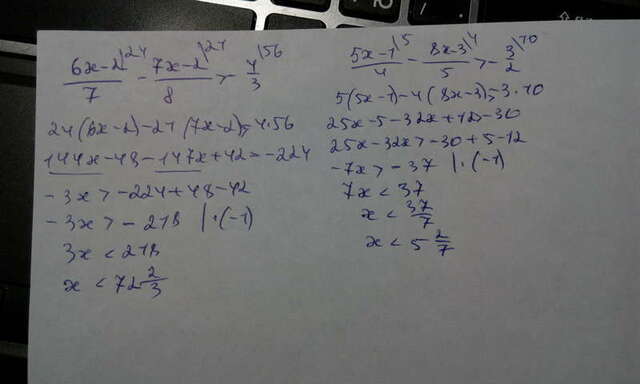 (6x-2)/7 \24 - (7x-2)/8 \21 > -4/3 \56
24(6x-2)-21(7x-2)>-4·56
144x-48-147x+42>-224
-3x>-224+48-42
-3x>-218 |·(-1)
3x<218
x<72 2/3
(5x-1)/4 \5 - (8x-3)/5 \4 > -3/2 \10
5(5x-1)-4(8x-3)>-3·10
25x-5-32x+12>-30
25x-32x>-30+5-12
-7x>-37 |·(-1)
7x<37
x<37/7
x<5 2/7